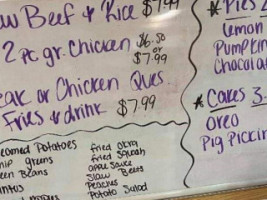 Beef & Rice $7.99
2 pc gr. Chicken $6.50
or
$7.99
or Chicken Ques.
Fries & drink $7.99
Potatoes
greens
Beans
fried okra
fried squash
apple sauce
Slaw Beets
Peaches
Potato Salad
* Pies 2.
lemon
Pumpkin
Chocolat
* Cakes 3.
Oreo
Pig Pickin